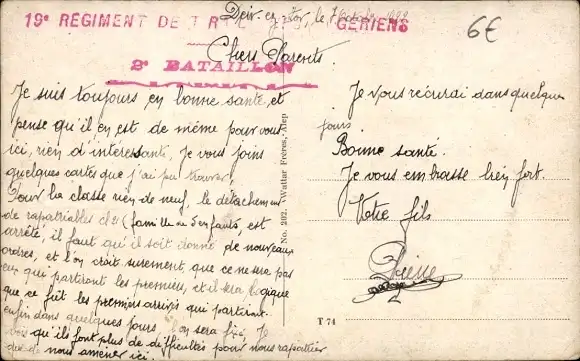 19e REGIMENT DE TIR GERIENS
6€
Deir-ez-Zor, le
Chers Parents
2e BATAILLON
Je suis toujours en bonne santé, et
pense qu'il en est de même pour vous
ici, rien d'intéressant, je vous joins
quelques cartes que j'ai pu trouver,
Pour la classe rien de neuf, le détachement
de rapatriables (famille de 5 enfants, est
arrêté, il faut qu'il soit donné de nouveaux
ordres, et l'on croit surement que ce ne sera pas
eux que partiront les premiers, et il sera logique
que ce fut les premiers arrivés qui partiront.
enfin dans quelques jours, l'on sera fixé, Je
vois qu'ils font plus de difficultés pour nous rapatrier
que de nous amener ici.
No. 292. - Wattar Frères, Alep
T 74
Je vous récrirai dans quelques
jours.
Bonne santé.
Je vous embrasse bien fort.
Votre fils